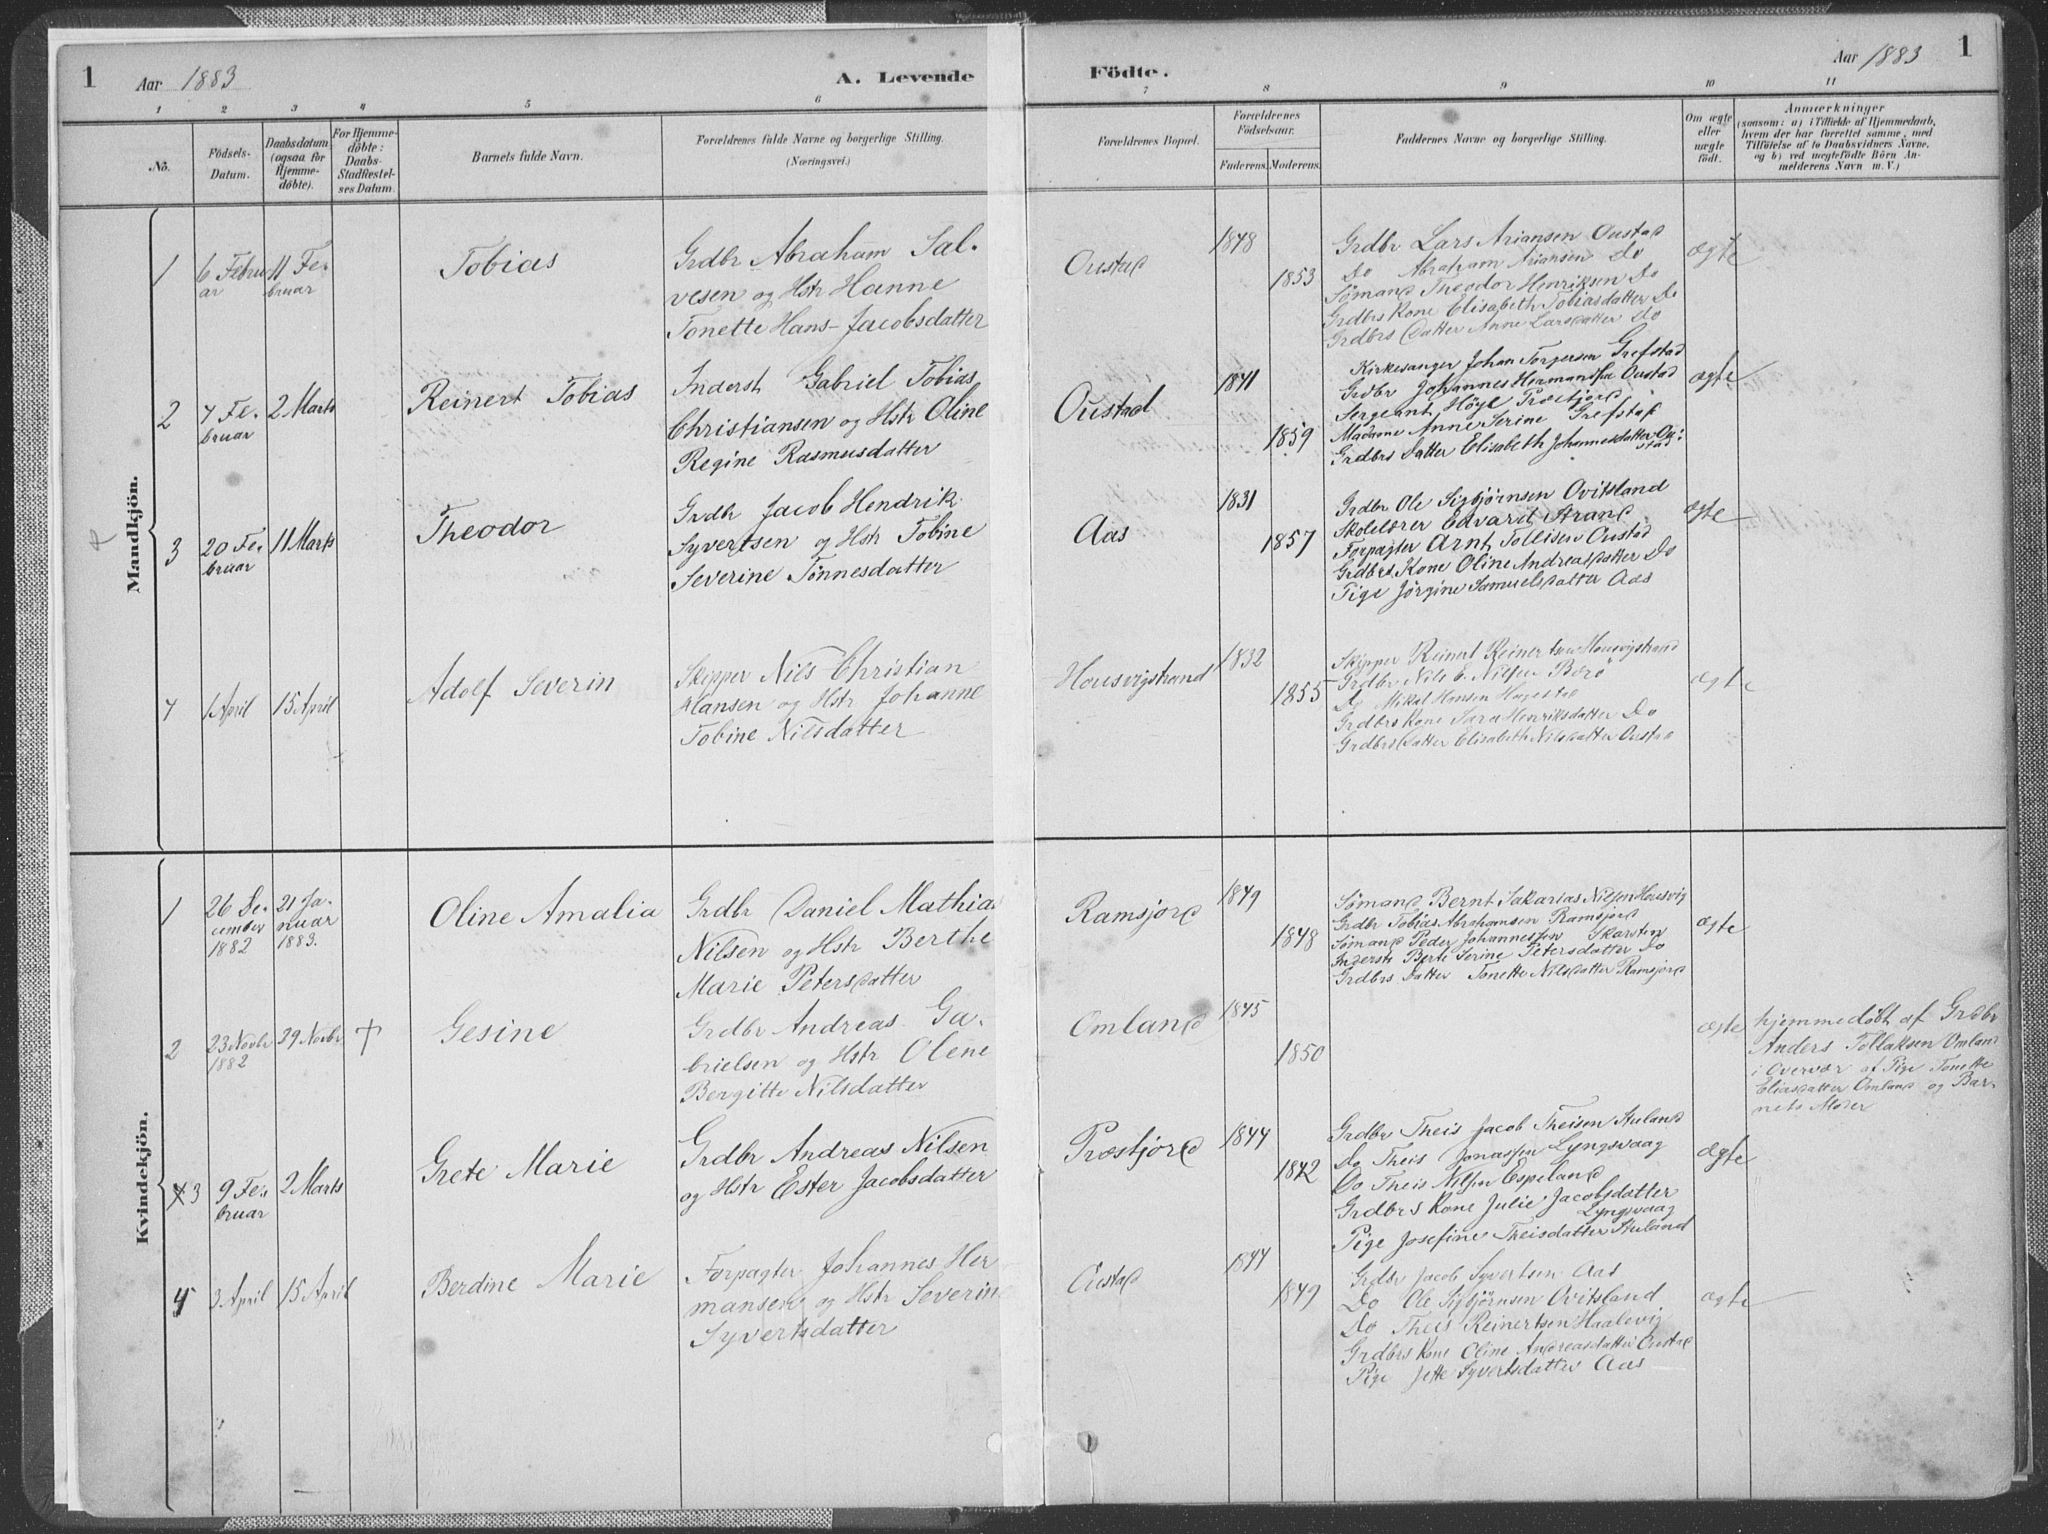 1 Aar 1883 A. Levende Födte. Aar 1883 1
1 2 3 4 5 6 7 8 9 10 11
No.
Födsels-
Datum.
Daabsdatum
(ogsaa for
Hjemme-
döbte).
For Hjemme-
döbte:
Daabs-
Stadfæstel-
ses Datum.
Barnets fulde Navn.
Forældrenes fulde Navne og borgerlige Stilling.
(Næringsvei.)
Forældrenes Bopæl.
Forældrenes
Födselsaar.
Faderens. Moderens.
Faddernes Navne og borgerlig Stilling.
Om ægte
eller
uægte
födt.
Anmærkninger
(saasom: a) i Tilfælde af Hjemmedaab,
hvem der har forrettet samme, med
Tilföielse af to Daabsvidners Navne,
og b) ved uægtefödte Börn An-
melderens Navn m. V.)
Mandkjön.
1
6 Febru
ar
11 Fe-
bruar
Tobias
Grdbr Abraham Sal-
vesen og Hstr Hanne
Tonette Hans-Jacobsdatter
Oustad
1848
1853
Grdbr Lars Ariansen Oustad
Do Abraham Ariansen Do
Sømand Theodor Henriksen Do
Grdbrs Kone Elisabeth Tobiasdatter Do
Grdbrs Datter Anne Larsdatter Do
ægte
2
7 Fe-
bruar
2 Marts
Reinert Tobias
Inderst Gabriel Tobias
Christiansen og Hstr Oline
Regine Rasmusdatter
Oustad
1841
1859
Kirkesanger Johan Torjersen Grefstad
Grdbr Johannes Hermansen Oustad
Sergeant Höyl Præstjord
Madame Anne Serine Grefstad
Grdbrs Datter Elisabeth Johannesdatter Ou-
stad
ægte
3
20 Fe-
bruar
11 Marts
Theodor
Grdbr Jacob Hendrik
Syvertsen og Hstr Tobine
Severine Tönnesdatter
Aas
1831
1857
Grdbr Ole Sigbjørnsen Ovitsland
Skolelærer Edvard Strand
Forpagter Arnt Tollisen Oustad
Grdbrs Kone Oline Andreasdatter Do
Pige Jörgine Samuelsdatter Aas
ægte
4
1 April
15 April
Adolf Severin
Skipper Nils Christian
Hansen og Hstr Johanne
Tobine Nilsdatter
Housvigstrand
1832
1855
Skipper Reinert Reinertsen Housvigstrand
Grdbr Nils E. Nilsen Berö
Do Mikal Hansen Hagestad
Grdbrs Kone Sara Henriksdatter Do
Grdbrs Datter Elisabeth Nilsdatter Oustad
ægte
Kvindekjön.
1
26 De-
cember
1882
21 Ja-
nuar
1883.
Oline Amalia
Grdbr Daniel Mathias
Nilsen og Hstr Berthe
Marie Petersdatter
Ramsjord
1849
1848
Sømand Bernt Sakarias Nilsen Housvig
Grdbr Tobias Abrahamsen Ramsjord
Sømand Peder Johannessen Skarsten
Inderste Berte Serine Petersdatter Do
Grdbrs Datter Tonette Nilsdatter Ramsjord
ægte
2
23 Novbr
1882
29 Novbr
†
Gesine
Grdbr Andreas Ga-
brielsen og Hstr Olene
Bergitte Nilsdatter
Omland
1845
1850
ægte
hjemmedöbt af Grdbr
Anders Tollaksen Omland
i Overvær af Pige Tonette
Eliasdatter Omland og Bar-
nets Moder
3
9 Fe-
bruar
2 Marts
Grete Marie
Grdbr Andreas Nilsen
og Hstr Ester Jacobsdatter
Præstjord
1844
1842
Grdbr Theis Jacob Theisen Stuland
Do Theis Jonassen Lyngsvaag
Do Theis Nilsen Espeland
Grdbrs Kone Julie Jacobsdatter
Lyngsvaag
Pige Josefine Theisdatter Stuland
ægte
4
3 April
15 April
Berdine Marie
Forpagter Johannes Her
mansen og Hstr Severine
Syvertsdatter
Oustad
1844
1849
Grdbr Jacob Syvertsen Aas
Do Ole Sigbjörnsen Ovitsland
Do Theis Reinertsen Haalevig
Grdbrs Kone Oline Andreasdatter Oustad
Pige Jette Syvertsdatter Aas
ægte